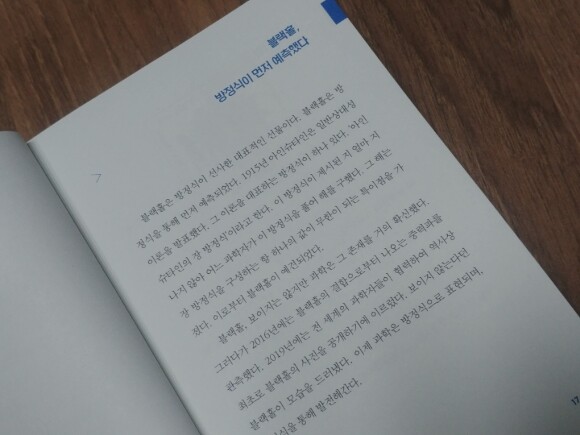 블랙홀,
방정식이 먼저 예측했다
블랙홀은 방정식이 선사한 대표적인 선물이다. 블랙홀은 방
정식을 통해 먼저 예측되었다. 1915년 아인슈타인은 일반상대성
이론을 발표했다. 그 이론을 대표하는 방정식이 하나 있다. '아인
슈타인의 장 방정식'이라고 한다. 이 방정식이 제시된 지 얼마 지
나지 않아 어느 과학자가 이 방정식을 풀어 해를 구했다. 그 해는
장 방정식을 구성하는 항 하나의 값이 무한이 되는 특이점을 가
졌다. 이로부터 블랙홀이 예견되었다.
블랙홀, 보이지는 않지만 과학은 그 존재를 거의 확신했다.
그러다가 2016년에는 블랙홀의 결합으로부터 나오는 중력파를
관측했다. 2019년에는 전 세계의 과학자들이 협력하여 역사상
최초로 블랙홀의 사진을 공개하기에 이르렀다. 보이지 않는다던
블랙홀이 모습을 드러냈다. 이제 과학은 방정식으로 표현되며,
식을 통해 발전해간다.
17